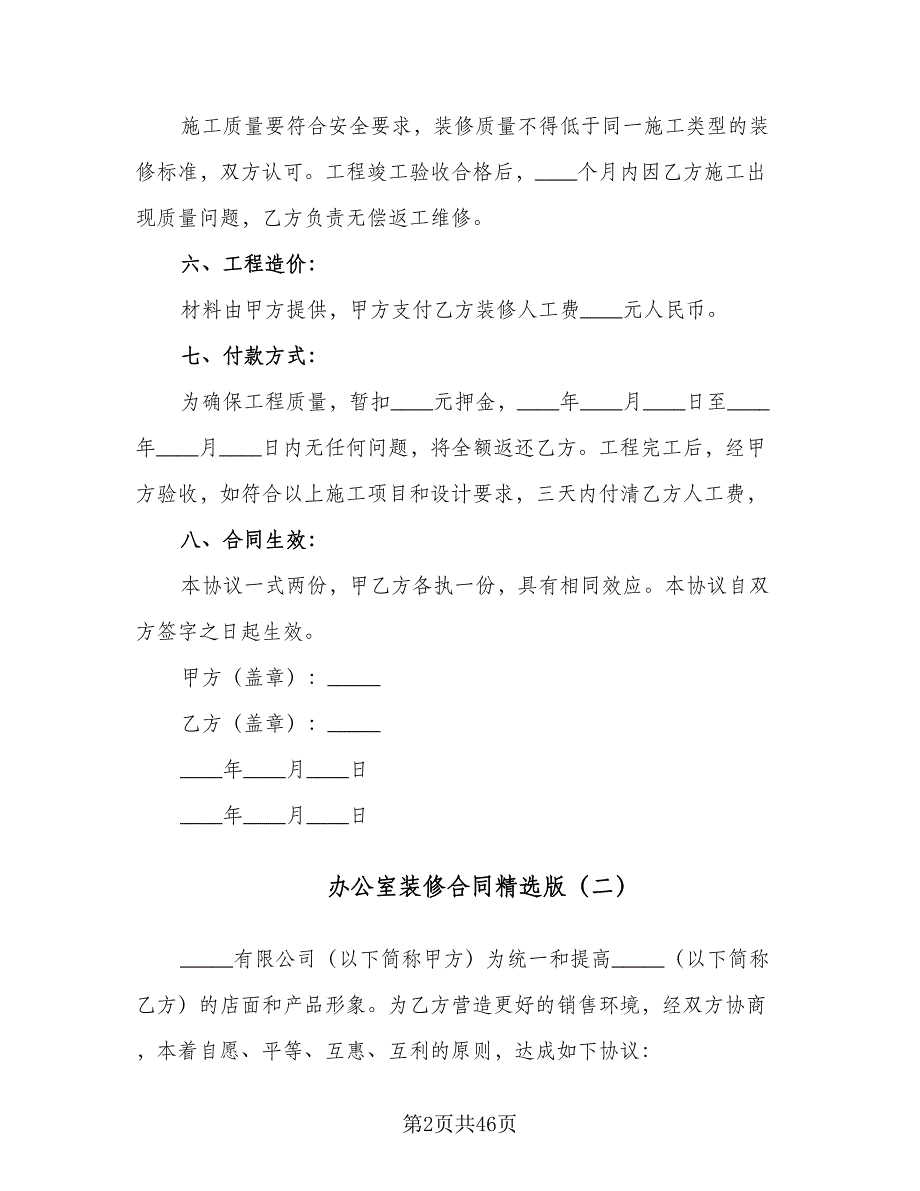 施工质量要符合安全要求，装修质量不得低于同一施工类型的装
修标准，双方认可。工程竣工验收合格后，____个月内因乙方施工出
现质量问题，乙方负责无偿返工维修。
六、工程造价：
材料由甲方提供，甲方支付乙方装修人工费____元人民币。
七、付款方式：
为确保工程质量，暂扣____元押金，____年____月____日至____
年____月____日内无任何问题，将全额返还乙方。工程完工后，经甲
方验收，如符合以上施工项目和设计要求，三天内付清乙方人工费，
八、合同生效：
本协议一式两份，甲乙方各执一份，具有相同效应。本协议自双
方签字之日起生效。
甲方（盖章）：_____
乙方（盖章）：_____
____年____月____日
____年____月____日
办公室装修合同精选版（二）
_____有限公司（以下简称甲方）为统一和提高_____（以下简称
乙方）的店面和产品形象。为乙方营造更好的销售环境，经双方协商
，本着自愿、平等、互惠、互利的原则，达成如下协议：
第2页共46页